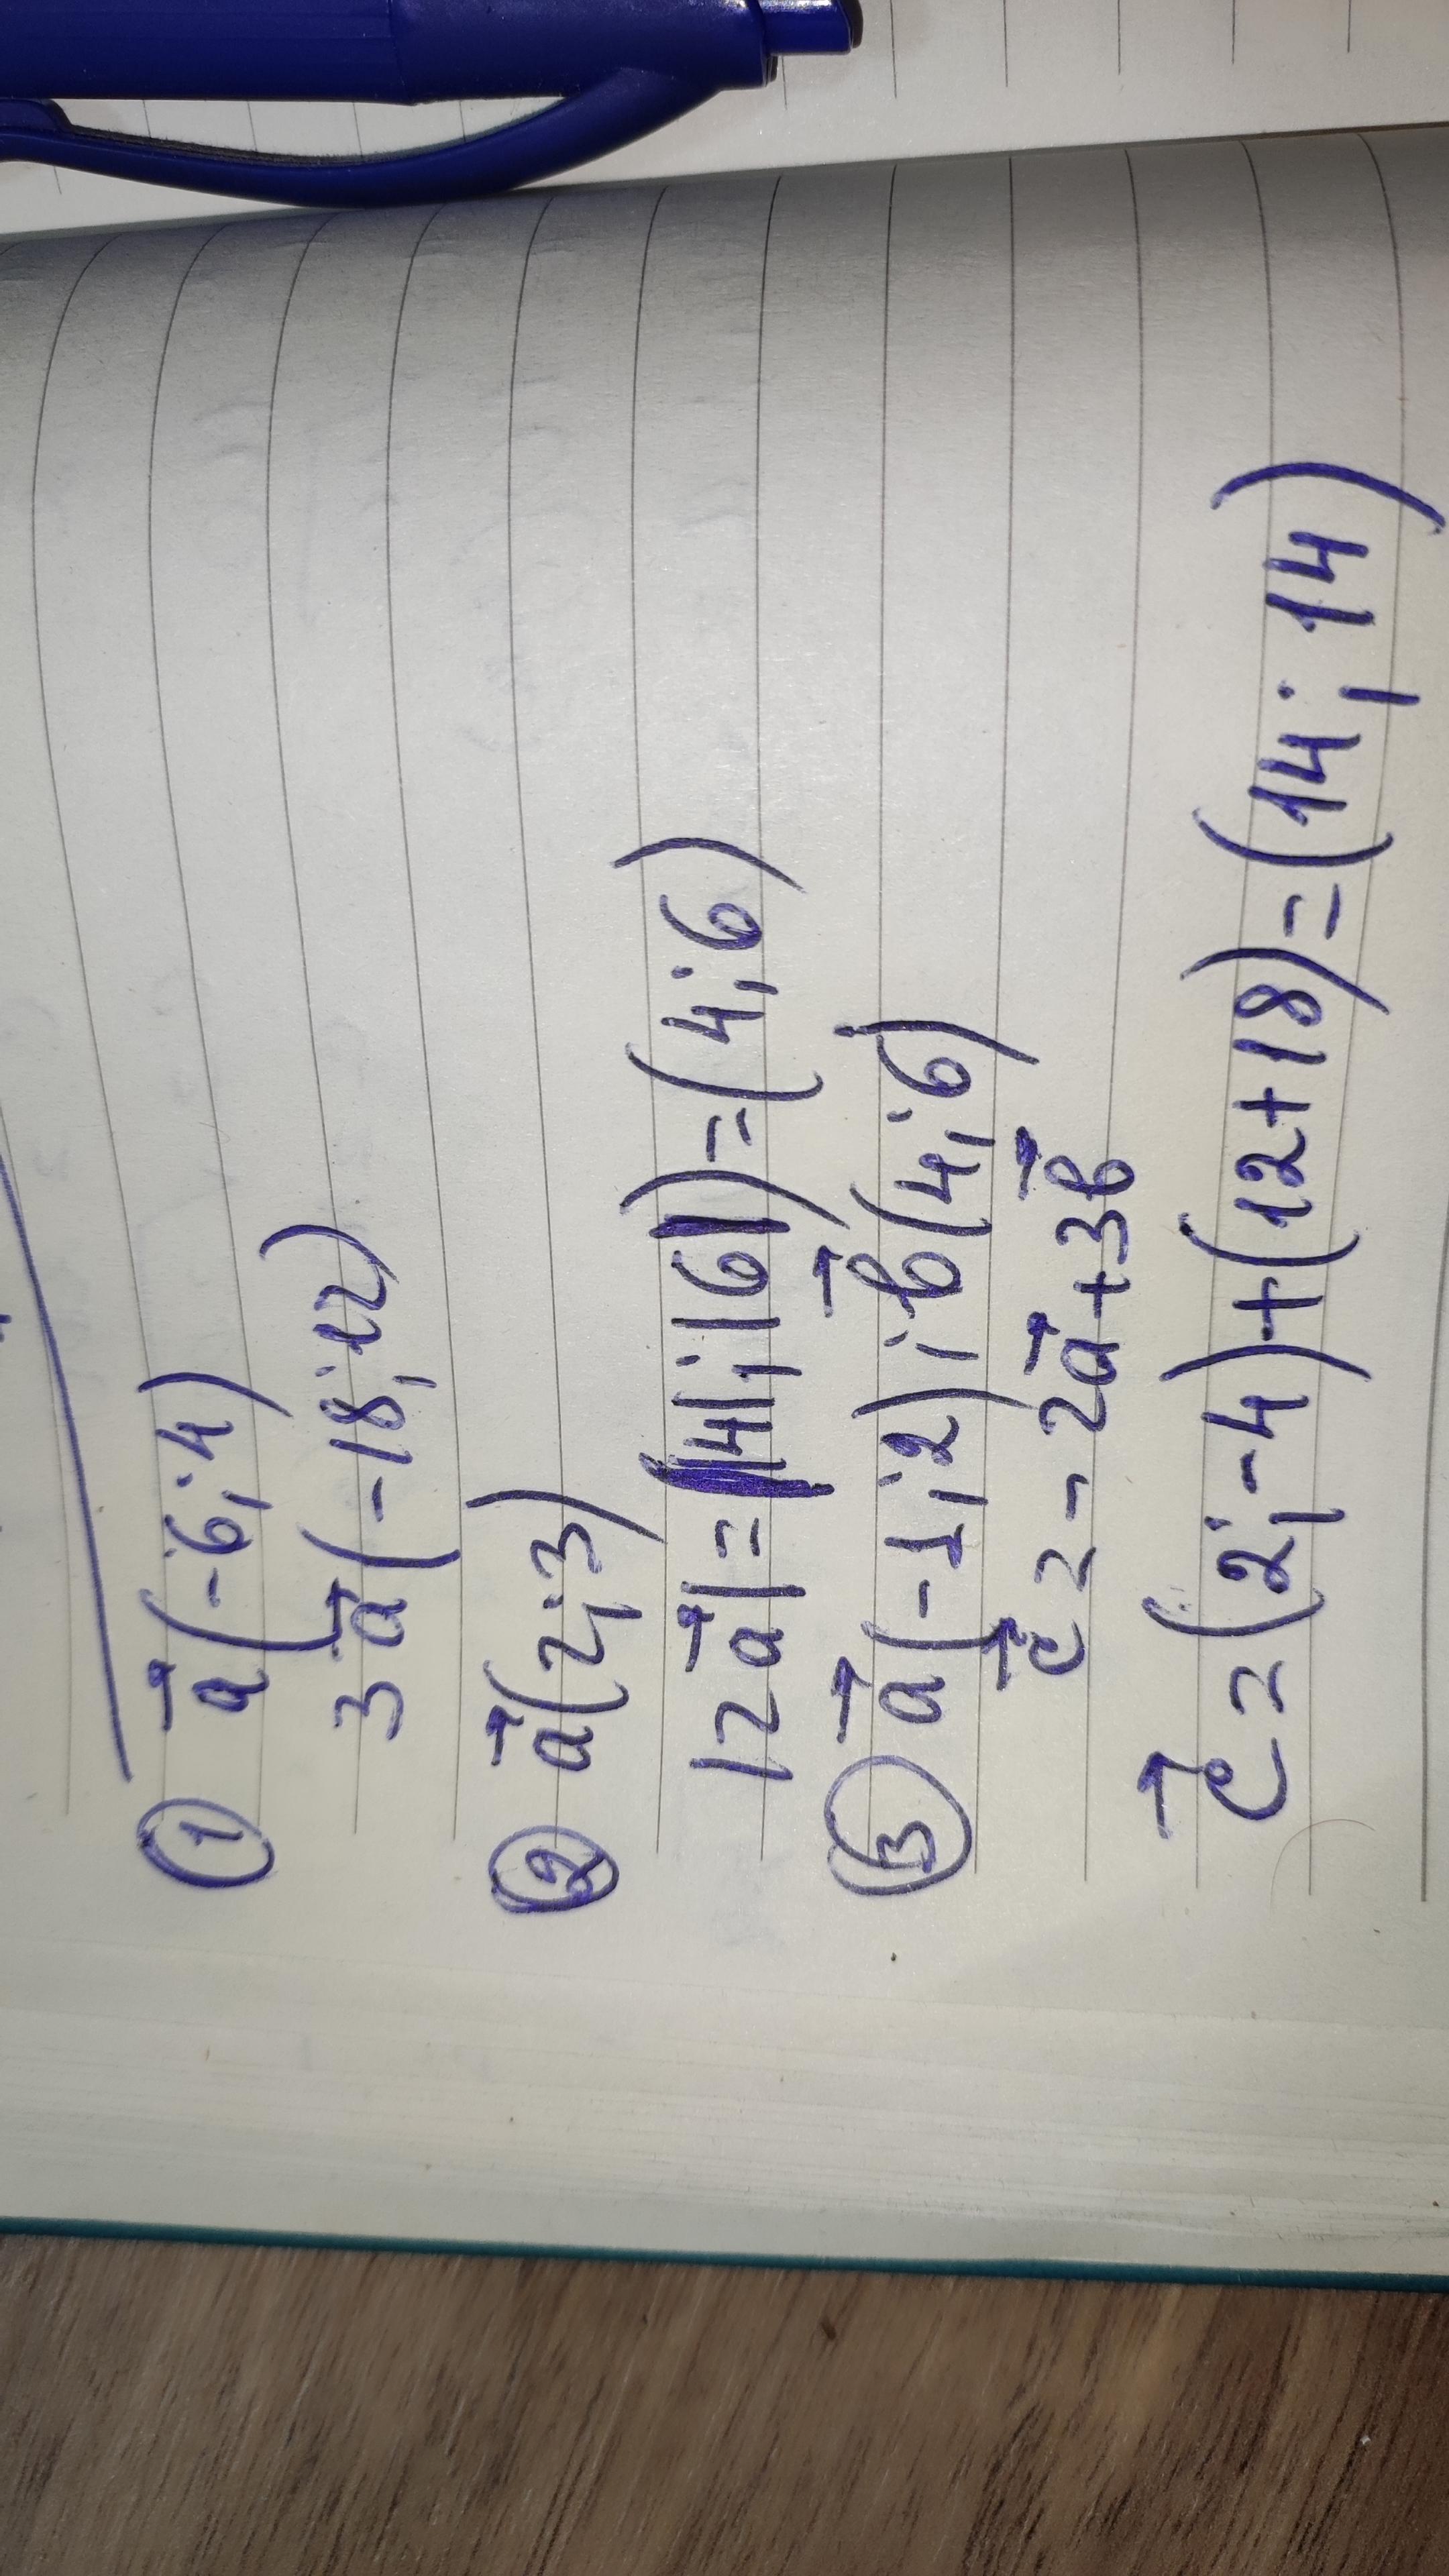 ① a⃗(-6;4)
3a⃗(-18;12)
② a⃗(2;3)
|2a⃗|=(|4|;|6|)=(4;6)
③ a⃗(-1;2); b⃗(4;6)
c⃗=-2a⃗+3b⃗
c⃗=(2;-4)+(12+18)=(14;14)